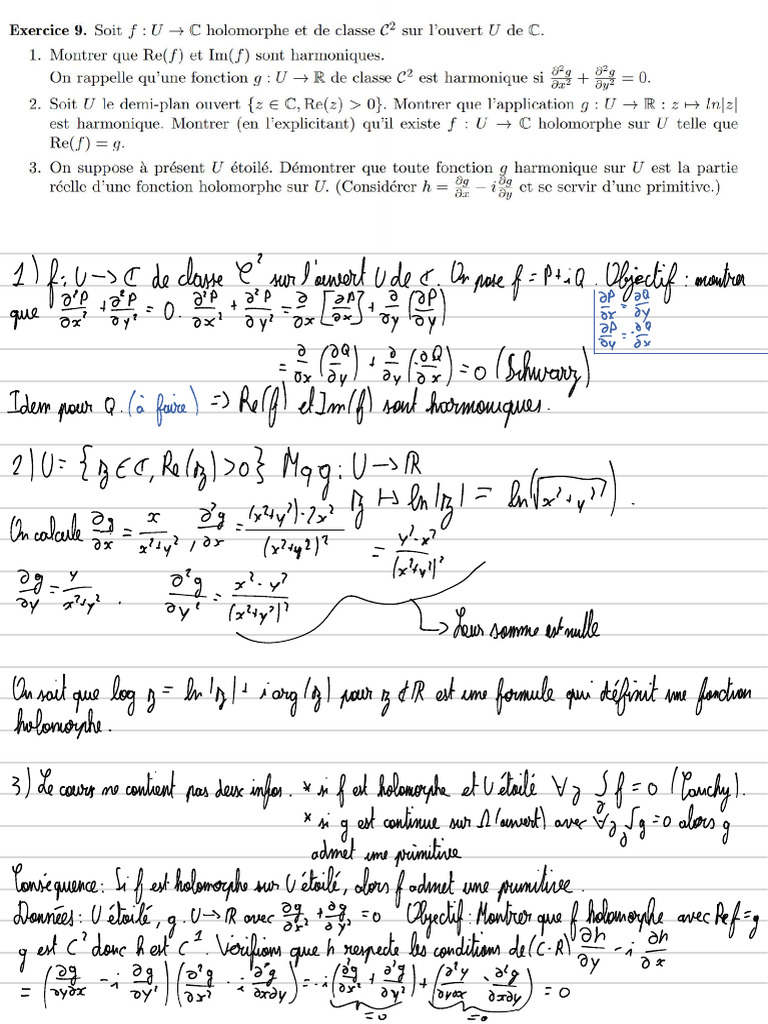 Exercice 9. Soit f : U → ℂ holomorphe et de classe C² sur l'ouvert U de ℂ.
1. Montrer que Re(f) et Im(f) sont harmoniques.
On rappelle qu'une fonction g : U → ℝ de classe C² est harmonique si ∂²g/∂x² + ∂²g/∂y² = 0.
2. Soit U le demi-plan ouvert {z ∈ ℂ, Re(z) > 0}. Montrer que l'application g : U → ℝ : z ↦ ln|z|
est harmonique. Montrer (en l'explicitant) qu'il existe f : U → ℂ holomorphe sur U telle que
Re(f) = g.
3. On suppose à présent U étoilé. Démontrer que toute fonction g harmonique sur U est la partie
réelle d'une fonction holomorphe sur U. (Considérer h = ∂g/∂x − i∂g/∂y et se servir d'une primitive.)
1) f: U → ℂ de classe C² sur l'ouvert U de ℂ. On pose f = P+iQ. Objectif: montrer
que ∂²P/∂x² + ∂²P/∂y² = 0. ∂²P/∂x² + ∂²P/∂y² = ∂/∂x [∂P/∂x] + ∂/∂y (∂P/∂y)
∂P/∂x = ∂Q/∂y
∂P/∂y = -∂Q/∂x
= ∂/∂x (∂Q/∂y) + ∂/∂y (-∂Q/∂x) = 0 (Schwarz)
Idem pour Q. (à faire) => Re(f) et Im(f) sont harmoniques.
2) U = {z ∈ ℂ, Re(z) > 0} Mq g: U → ℝ
z ↦ ln|z| = ln(√x²+y²).
On calcule ∂g/∂x = x/(x²+y²), ∂²g/∂x = ((x²+y²)-2x²)/(x²+y²)² = (y²-x²)/(x²+y²)²
∂g/∂y = y/(x²+y²). ∂²g/∂y² = (x²-y²)/(x²+y²)²
→ Leur somme est nulle
On sait que log z = ln|z| + i arg(z) pour z ∉ ℝ est une formule qui définit une fonction
holomorphe.
3) Le cours ne contient pas deux infos. * si f est holomorphe et U étoilé ∀γ ∫γ f = 0 (Cauchy).
* si g est continue sur Ω (ouvert) avec ∀γ ∫γ g = 0 alors g
admet une primitive
Conséquence: Si f est holomorphe sur U étoilé, alors f admet une primitive.
Données: U étoilé, g: U → ℝ avec ∂²g/∂x² + ∂²g/∂y² = 0 Objectif: Montrer que f holomorphe avec Re f = g
g est C² donc h est C¹. Vérifions que h respecte les conditions de (C-R) ∂h/∂y - i ∂h/∂x
= (∂²g/∂y∂x - i ∂²g/∂y²) (∂²g/∂x² - i ∂²g/∂x∂y) = -i (∂²g/∂x² + ∂²g/∂y²) + (∂²g/∂y∂x - ∂²g/∂x∂y) = 0
=0 =0